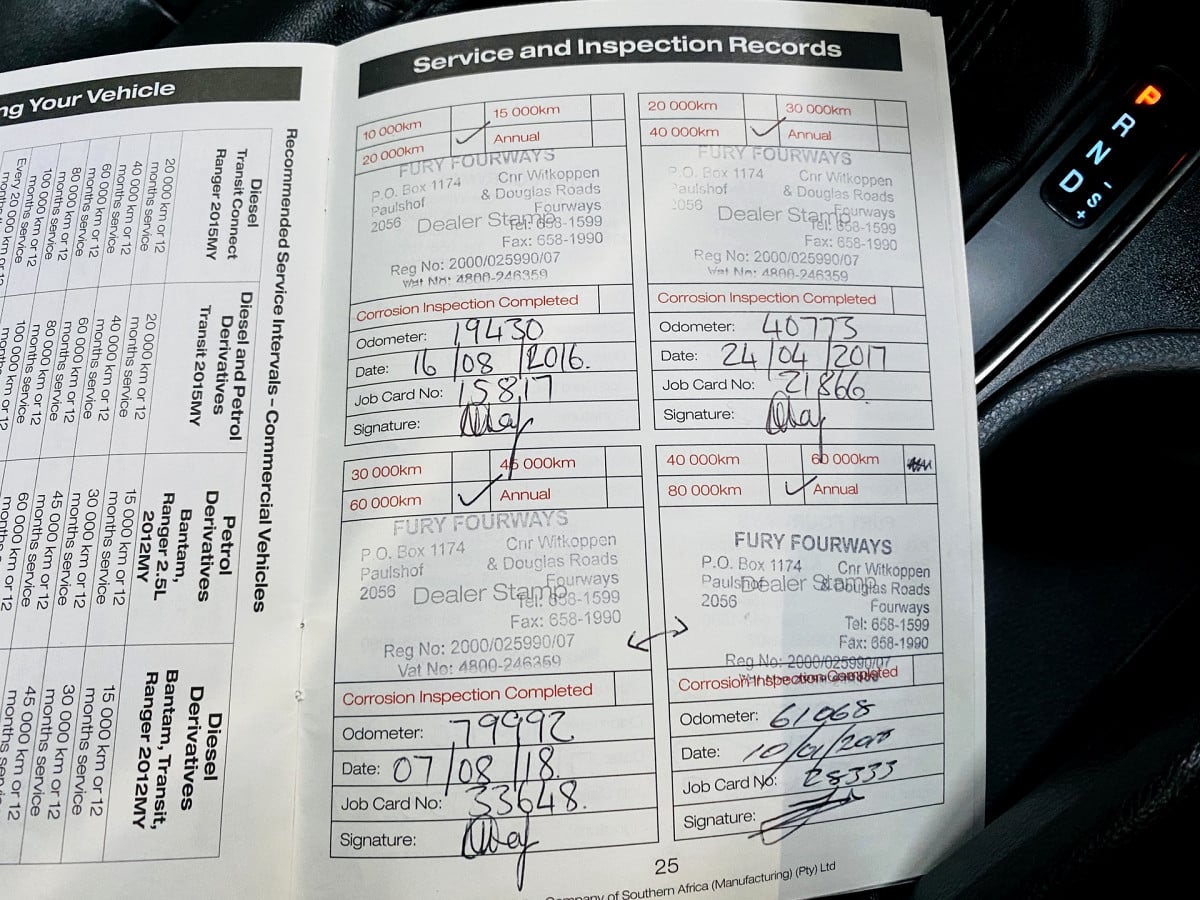 ng Your Vehicle
Recommended Service Intervals - Commercial Vehicles
Diesel
Transit Connect
Ranger 2015MY
20 000 km or 12
months service
40 000 km or 12
months service
60 000 km or 12
months service
80 000 km or 12
months service
100 000 km or 12
months service
Every 20 000 km or 12
Diesel and Petrol
Derivatives
Transit 2015MY
20 000 km or 12
months service
40 000 km or 12
months service
60 000 km or 12
months service
80 000 km or 12
months service
100 000 km or 12
Petrol
Derivatives
Bantam,
Ranger 2.5L
2012MY
15 000 km or 12
months service
30 000 km or 12
months service
45 000 km or 12
months service
60 000 km or 12
months service
Diesel
Derivatives
Bantam, Transit,
Ranger 2012MY
15 000 km or 12
months service
30 000 km or 12
months service
45 000 km or 12
Service and Inspection Records
10 000km 15 000km
20 000km Annual
FURY FOURWAYS
P.O. Box 1174 Cnr Witkoppen
Paulshof & Douglas Roads
2056 Fourways
Dealer Stamp
Tel: 658-1599
Fax: 658-1990
Reg No: 2000/025990/07
Vat No: 4800-246359
Corrosion Inspection Completed
Odometer: 19430
Date: 16/08/2016.
Job Card No: 15817
Signature:
20 000km 30 000km
40 000km Annual
FURY FOURWAYS
P.O. Box 1174 Cnr Witkoppen
Paulshof & Douglas Roads
2056 Fourways
Dealer Stamp
Tel: 658-1599
Fax: 658-1990
Reg No: 2000/025990/07
Vat No: 4800-246359
Corrosion Inspection Completed
Odometer: 40773
Date: 24/04/2017
Job Card No: 21866
Signature:
30 000km 45 000km
60 000km Annual
FURY FOURWAYS
P.O. Box 1174 Cnr Witkoppen
Paulshof & Douglas Roads
2056 Fourways
Dealer Stamp
Tel: 658-1599
Fax: 658-1990
Reg No: 2000/025990/07
Vat No: 4800-246359
Corrosion Inspection Completed
Odometer: 79992
Date: 07/08/18.
Job Card No: 33648.
Signature:
40 000km 60 000km
80 000km Annual
FURY FOURWAYS
P.O. Box 1174 Cnr Witkoppen
Paulshof & Douglas Roads
2056 Fourways
Dealer Stamp
Tel: 658-1599
Fax: 658-1990
Reg No: 2000/025990/07
Corrosion Inspection Completed
Odometer: 61068
Date: 10/01/
Job Card No: 28333
Signature:
25
Company of Southern Africa (Manufacturing) (Pty) Ltd
P
R
N
D
-
S
+